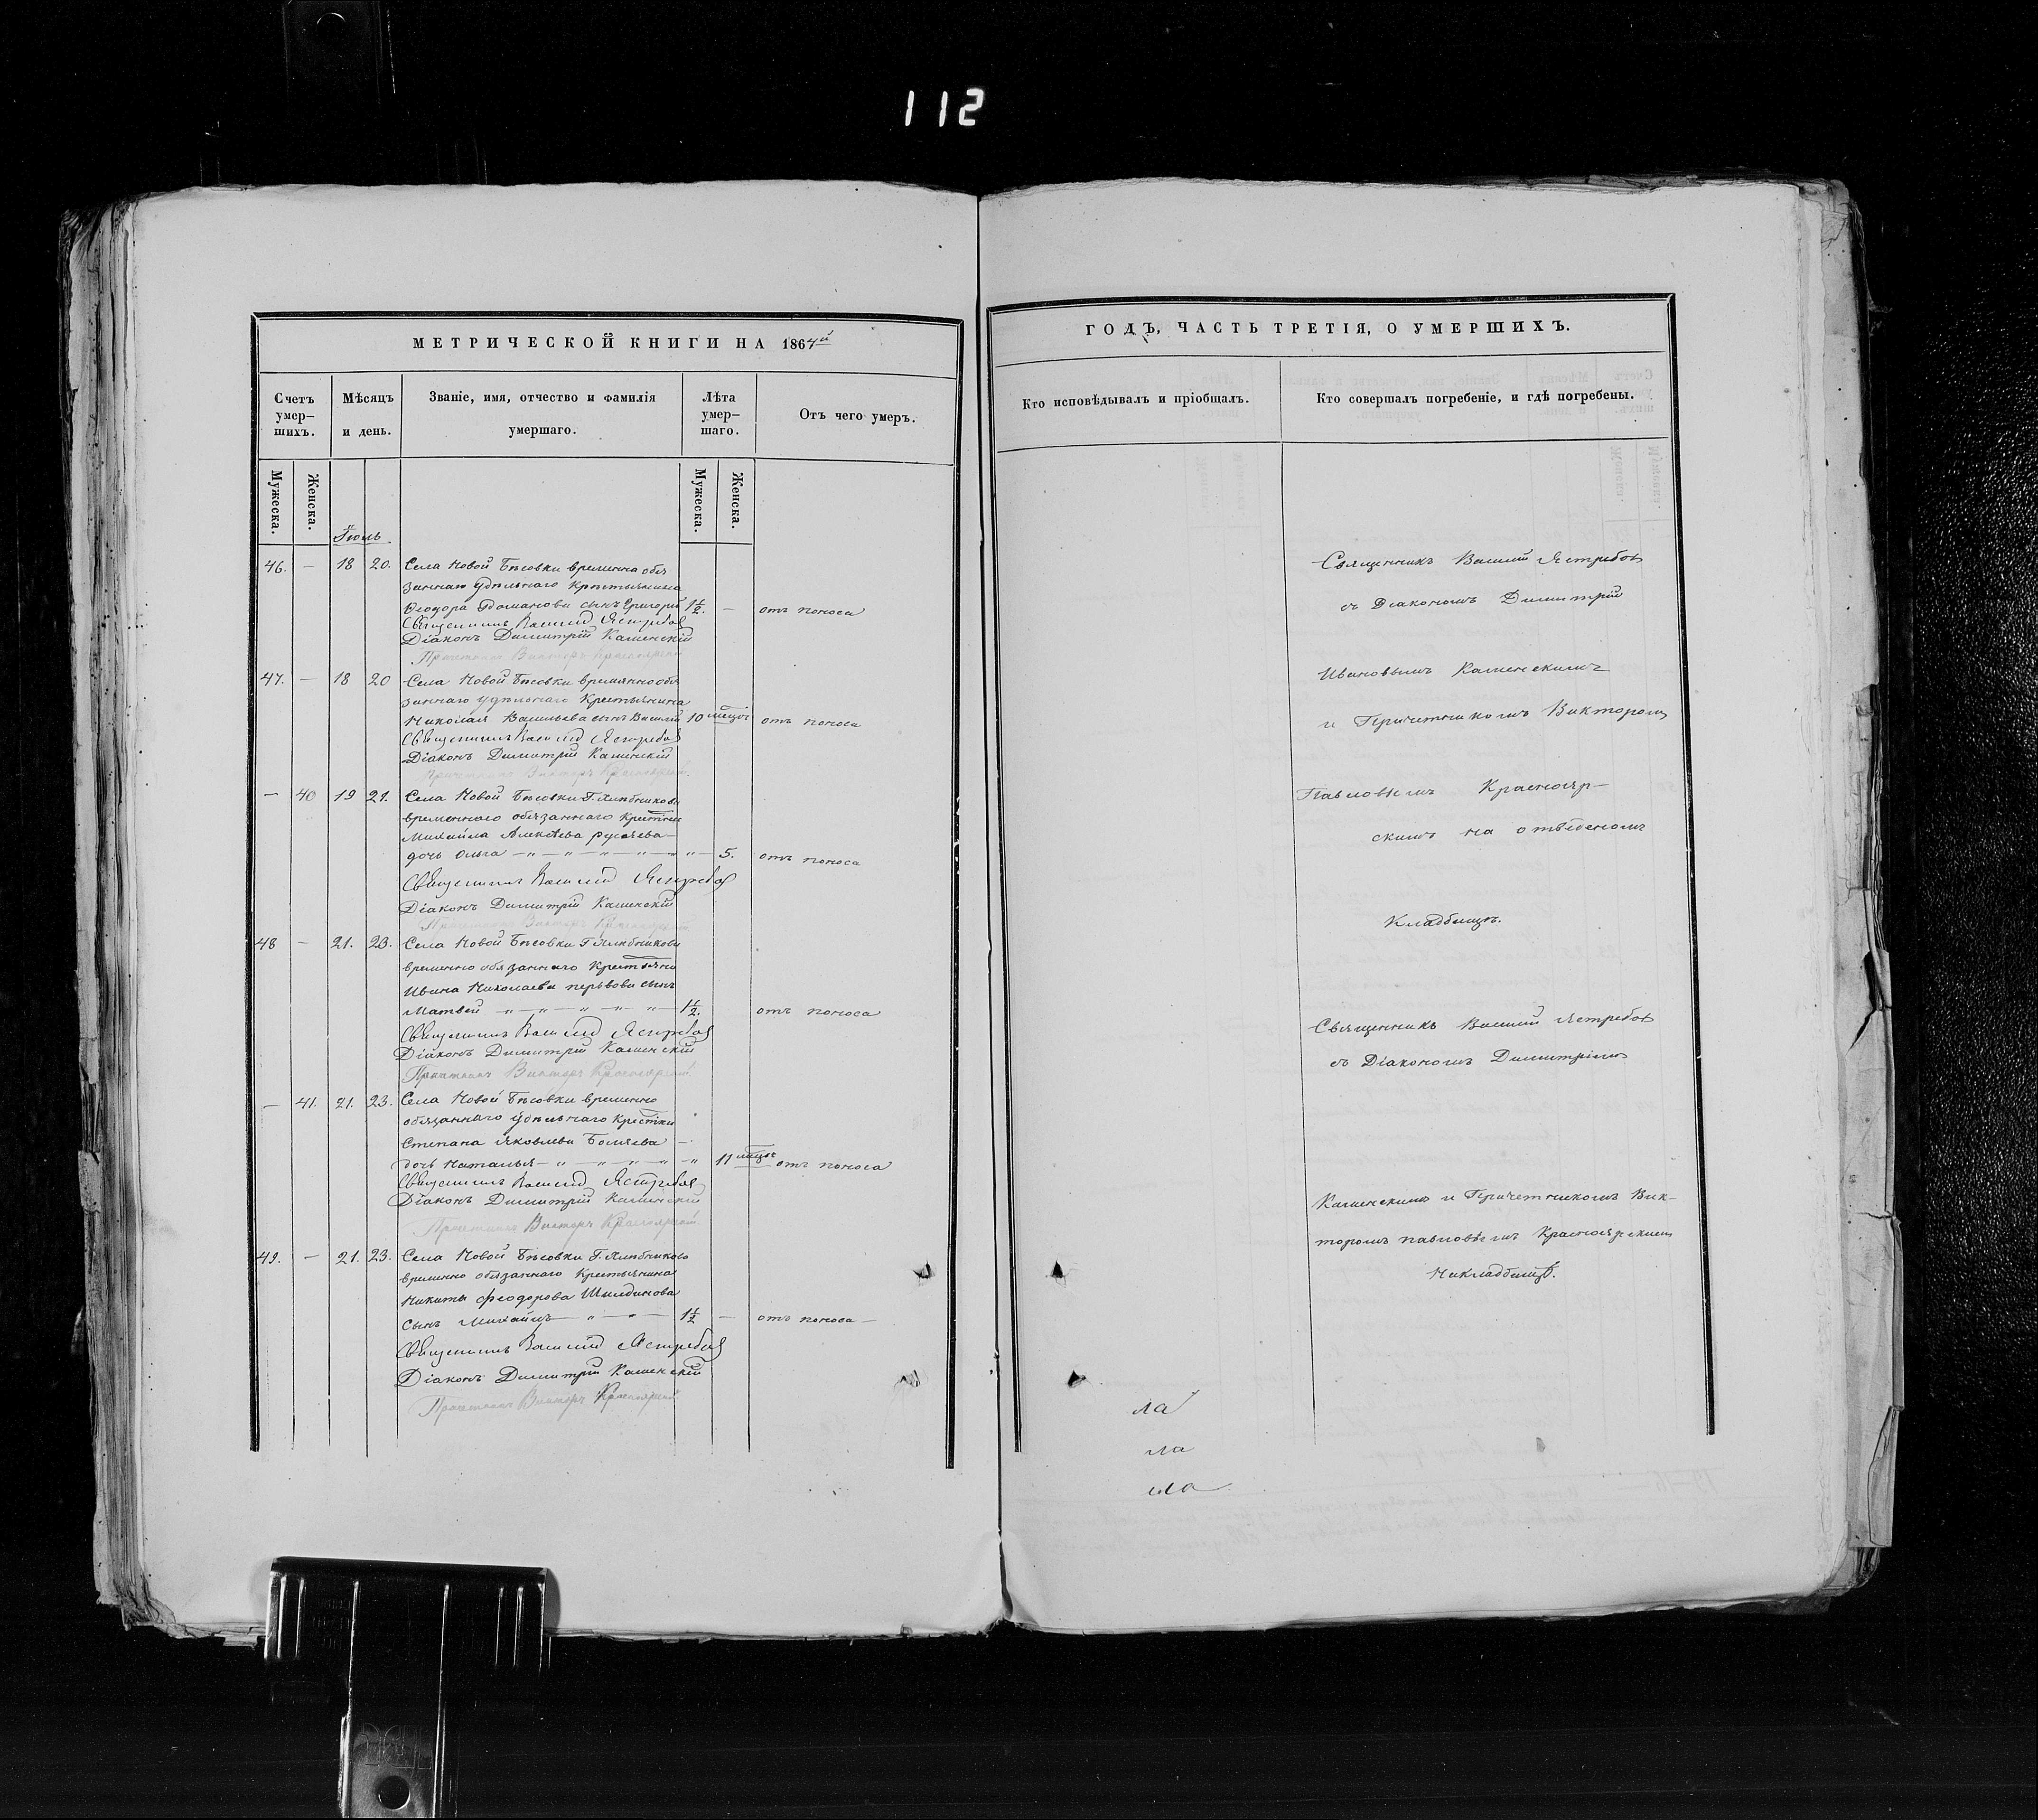 112
МЕТРИЧЕСКОЙ КНИГИ НА 1864й
Счетъ умер-шихъ.
Мѣсяцъ и день.
Званіе, имя, отчество и фамилія умершаго.
Лѣта умер-шаго.
Отъ чего умеръ.
Мужеска.
Женска.
Мужеска.
Женска.
Іюль
46. — 18 20. Села Новой Бѣсовки временно обя
заннаго удѣльнаго Крестьянина
Ѳеодора Романова сынъ Григорій 1½. — отъ поноса
Священникъ Василій Ястребов
Діаконъ Димитрій Каменскій
Причетникъ Викторъ Красноярскій
47. — 18 20 Села Новой Бѣсовки временно обя
заннаго удѣльнаго Крестьянина
Николая Васильева сынъ Василій 10 мѣсяц отъ поноса
Священникъ Василій Ястребов
Діаконъ Димитрій Каменскій
Причетникъ Викторъ Красноярскій
— 40 19 21. Села Новой Бѣсовки Г.
временного обязаннаго
Михаила Алексѣева
дочь Ольга — 5. отъ поноса
Священникъ Василій Ястребов
Діаконъ Димитрій Каменскій
Причетникъ Викторъ Красноярскій
48 — 21. 23. Села Новой Бѣсовки Г
временно обязаннаго
Ивана Николаева сынъ
Матвей 1½. отъ поноса
Священникъ Василій Ястребов
Діаконъ Димитрій Каменскій
Причетникъ Викторъ Красноярскій
— 41. 21. 23. Села Новой Бѣсовки временно
обязаннаго удѣльнаго
Степана Яковлева
дочь Наталья — 11 мѣсяц отъ поноса
Священникъ Василій Ястребов
Діаконъ Димитрій Каменскій
Причетникъ Викторъ Красноярскій
49. — 21. 23. Села Новой Бѣсовки Г.
временно обязаннаго Крестьянина
Никиты Феодорова
сынъ Михаилъ — 1½ — отъ поноса —
Священникъ Василій Ястребов
Діаконъ Димитрій Каменскій
Причетникъ Викторъ Красноярскій
ГОДЪ, ЧАСТЬ ТРЕТІЯ, О УМЕРШИХЪ.
Кто исповѣдывалъ и пріобщалъ.
Кто совершалъ погребеніе, и гдѣ погребены.
Священникъ Василий Ястребов
съ Діакономъ Димитрій
Ивановымъ Каменскимъ
и Причетникомъ Викторомъ
Павловымъ Краснояр-
скимъ на отведеномъ
Кладбищѣ.
Священникъ Василий Ястребов
съ Діакономъ Димитріемъ
Каменскимъ и Причетникомъ Вик-
торомъ павловымъ Красноярскимъ
На кладбищѣ.
ла
ла
ила